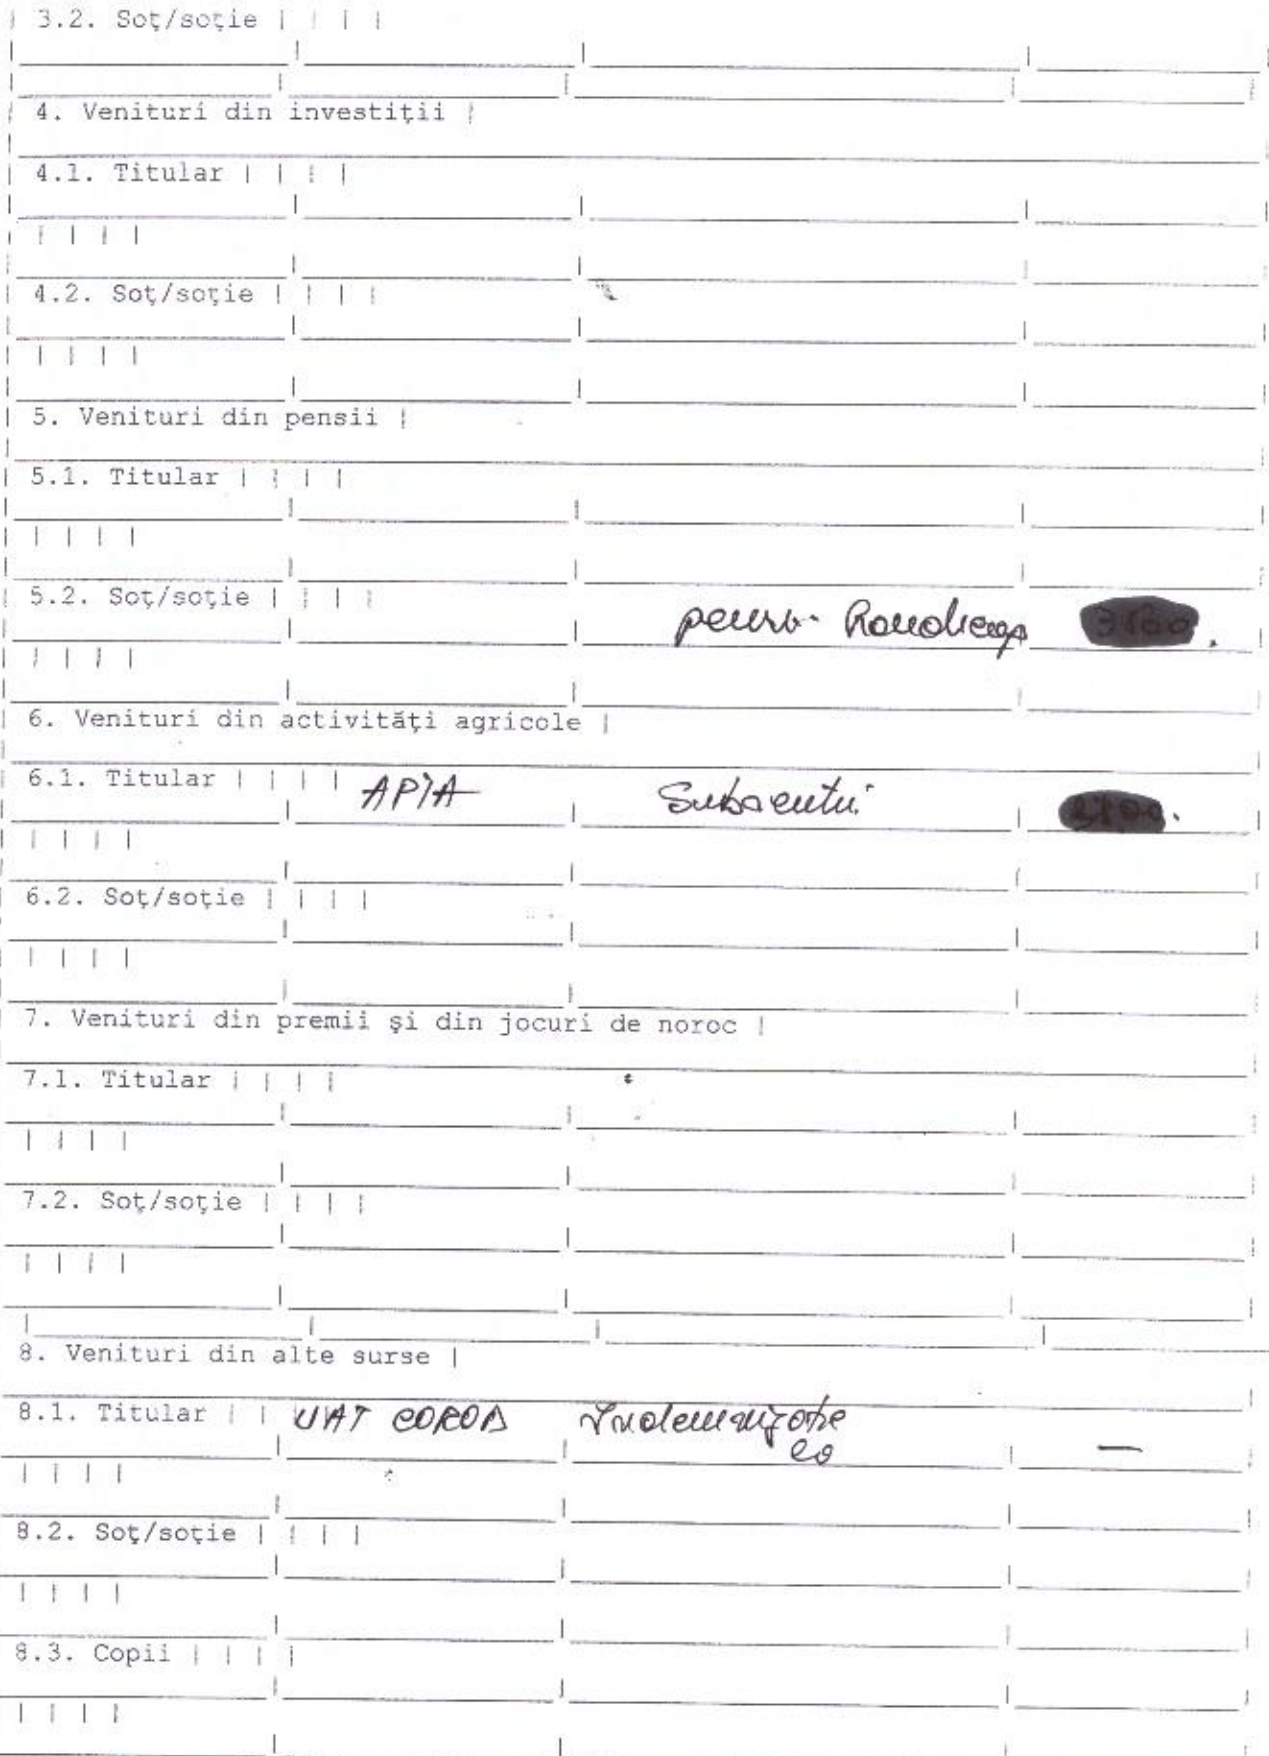 3.2. Soţ/soţie | | | |
4. Venituri din investiţii |
4.1. Titular | | | |
| | | |
4.2. Soţ/soţie | | | |
| | | |
5. Venituri din pensii |
5.1. Titular | | | |
| | | |
5.2. Soţ/soţie | | | |
| | | |
6. Venituri din activităţi agricole |
6.1. Titular | | | | APIA
| | | |
6.2. Soţ/soţie | | | |
| | | |
7. Venituri din premii şi din jocuri de noroc |
7.1. Titular | | | |
| | | |
7.2. Soţ/soţie | | | |
| | | |
8. Venituri din alte surse |
8.1. Titular | | UAT COROD Indemnizaţie
—
| | | |
8.2. Soţ/soţie | | | |
| | | |
8.3. Copii | | | |
| | | |